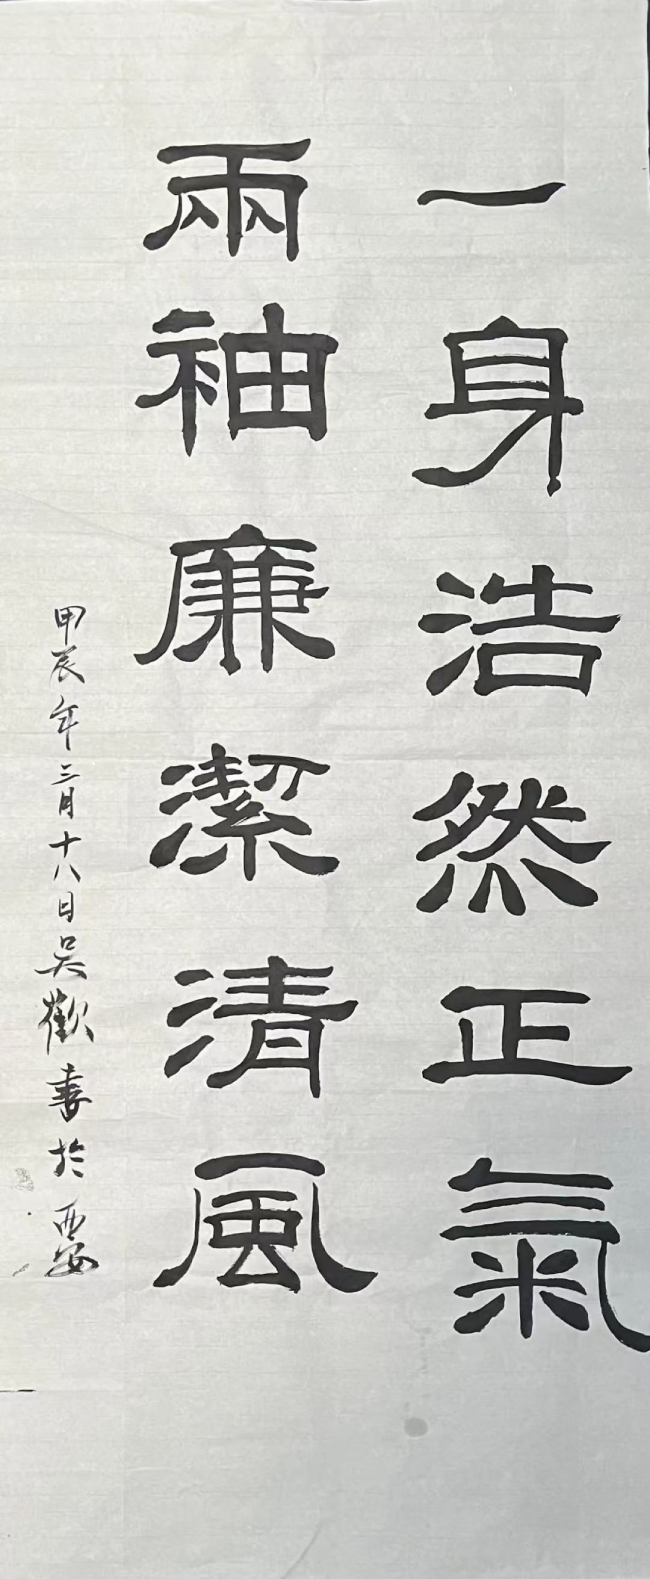 一身浩然正氣
兩袖廉潔清風
甲辰年三月十八日吴歡書於西安